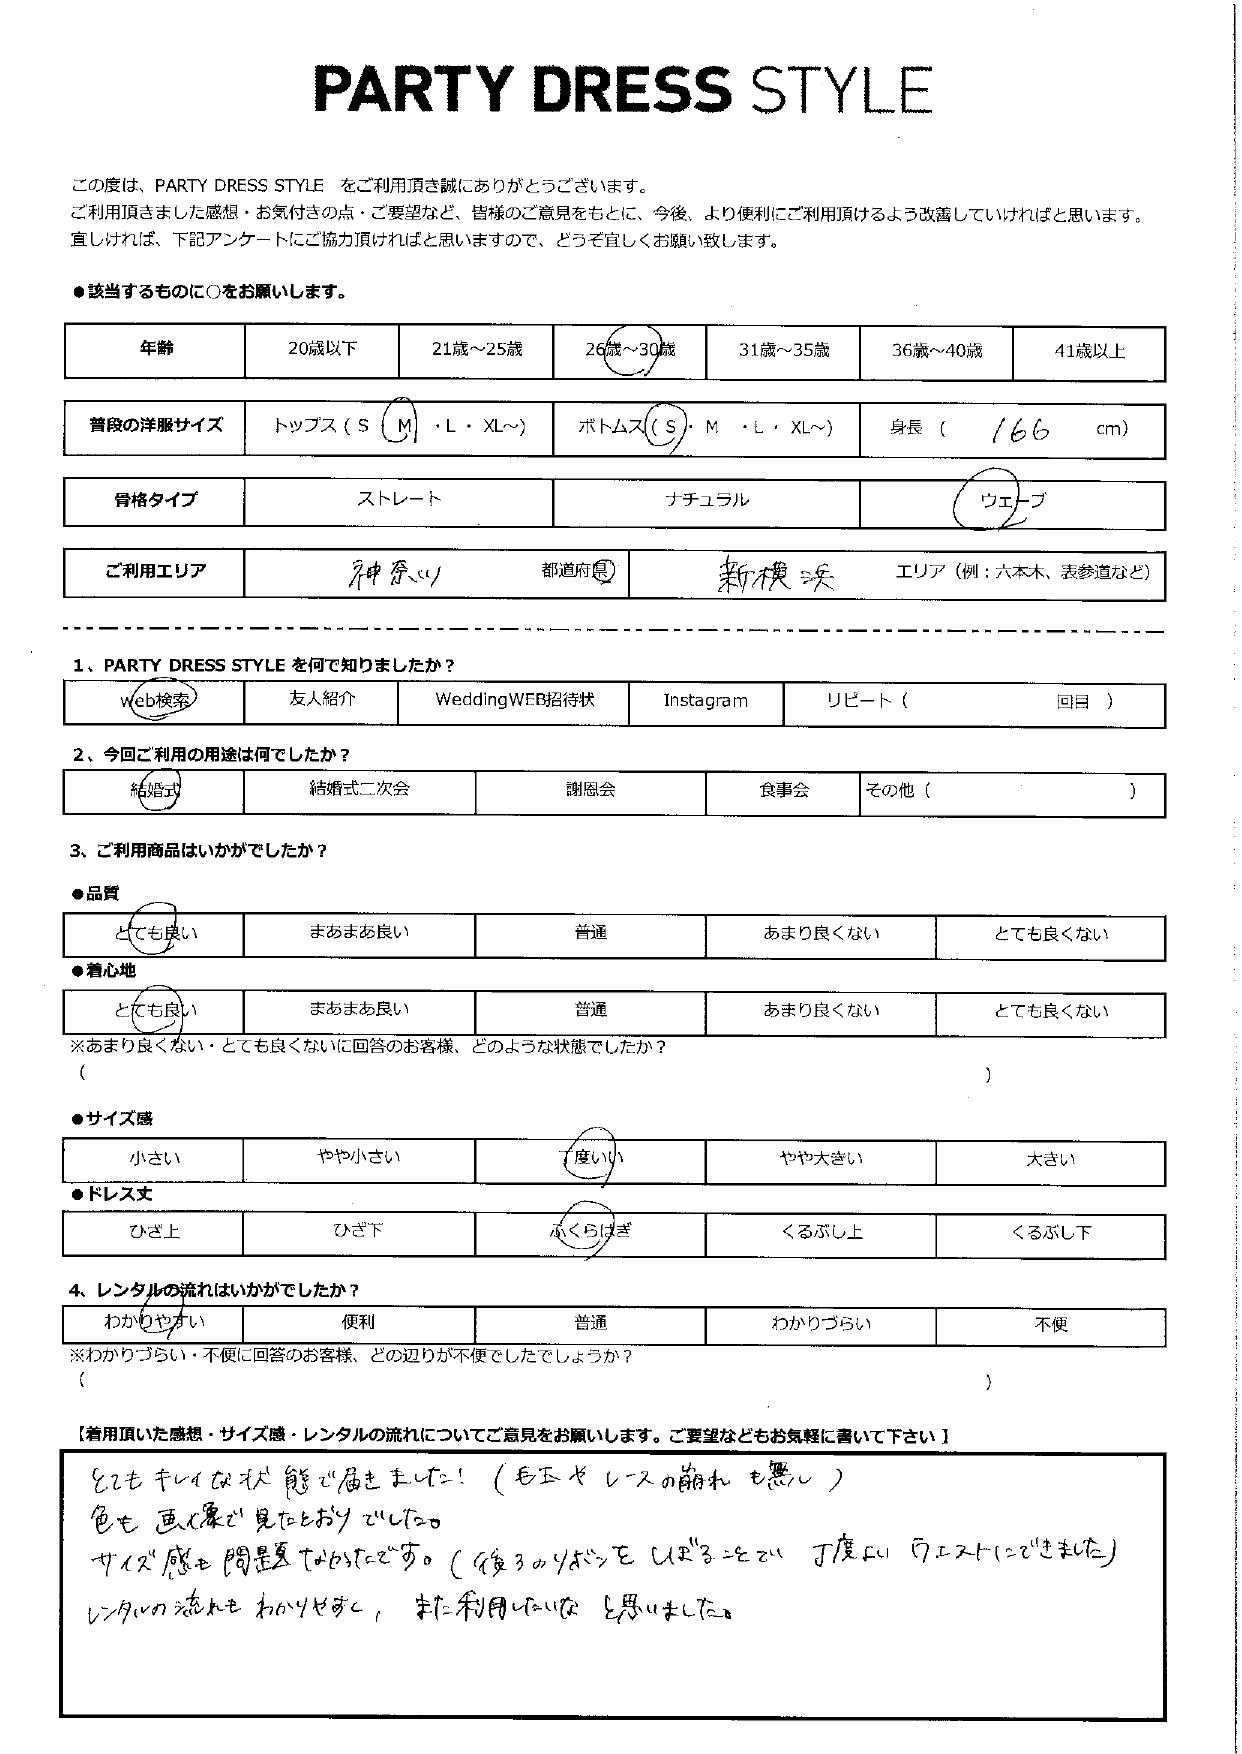 PARTY DRESS STYLE
この度は、PARTY DRESS STYLE をご利用頂き誠にありがとうございます。
ご利用頂きました感想・お気付きの点・ご要望など、皆様のご意見をもとに、今後、より便利にご利用頂けるよう改善していければと思います。
宜しければ、下記アンケートにご協力頂ければと思いますので、どうぞ宜しくお願い致します。
●該当するものに○をお願いします。
年齢 20歳以下 21歳～25歳 26歳～30歳 31歳～35歳 36歳～40歳 41歳以上
普段の洋服サイズ トップス ( S ・ M ・L ・ XL～) ボトムス ( S ・ M ・L ・ XL～) 身長 ( 166 cm)
骨格タイプ ストレート ナチュラル ウェーブ
ご利用エリア 神奈川 都道府県 新横浜 エリア（例：六本木、表参道など）
1、PARTY DRESS STYLE を何で知りましたか？
Web検索 友人紹介 WeddingWEB招待状 Instagram リピート ( 回目 )
2、今回ご利用の用途は何でしたか？
結婚式 結婚式二次会 謝恩会 食事会 その他 ( )
3、ご利用商品はいかがでしたか？
●品質
とても良い まあまあ良い 普通 あまり良くない とても良くない
●着心地
とても良い まあまあ良い 普通 あまり良くない とても良くない
※あまり良くない・とても良くないに回答のお客様、どのような状態でしたか？
( )
●サイズ感
小さい やや小さい 丁度いい やや大きい 大きい
●ドレス丈
ひざ上 ひざ下 ふくらはぎ くるぶし上 くるぶし下
4、レンタルの流れはいかがでしたか？
わかりやすい 便利 普通 わかりづらい 不便
※わかりづらい・不便に回答のお客様、どの辺りが不便でしたでしょうか？
( )
【着用頂いた感想・サイズ感・レンタルの流れについてご意見をお願いします。ご要望などもお気軽に書いて下さい】
とてもキレイな状態で届きました！（毛玉やレースの崩れも無し）
色も画像で見たとおりでした。
サイズ感も問題なかったです。（後ろのリボンをしぼることでい丁度よいウエストにできました）
レンタルの流れもわかりやすく、また利用したいなと思いました。